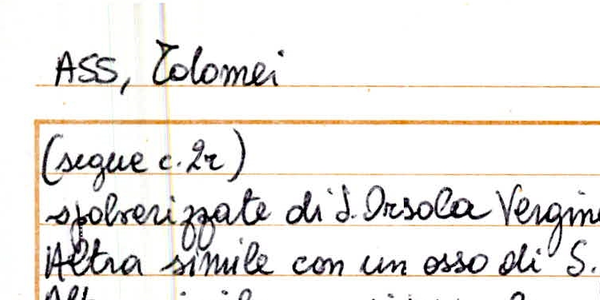 ASS, Tolomei
(segue c. 2r)
spolverizzate di S. Orsola Vergine
Altra simile con un osso di S.